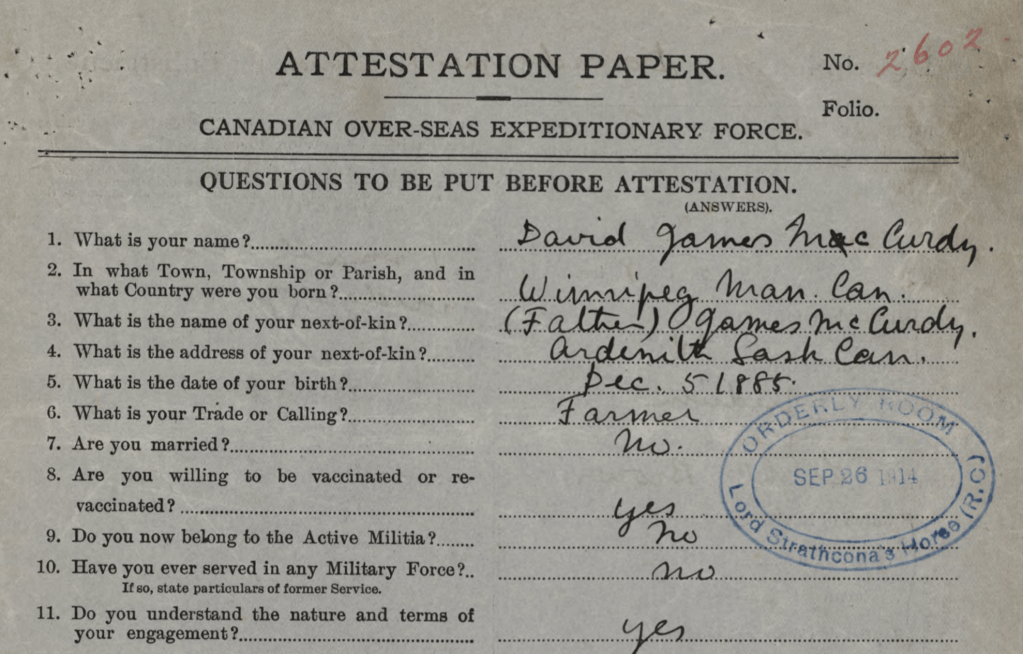 ATTESTATION PAPER.
No. 2602
Folio.
CANADIAN OVER-SEAS EXPEDITIONARY FORCE.
QUESTIONS TO BE PUT BEFORE ATTESTATION.
(ANSWERS).
1. What is your name?........ David James Mac Curdy.
2. In what Town, Township or Parish, and in
what Country were you born?........ Winnipeg Man. Can.
3. What is the name of your next-of-kin?........ (Father) James McCurdy.
4. What is the address of your next-of-kin?........ Ardenith Sask Can.
5. What is the date of your birth?........ Dec. 5 1885.
6. What is your Trade or Calling?........ Farmer
7. Are you married?........ No.
8. Are you willing to be vaccinated or re-
vaccinated?........ yes
9. Do you now belong to the Active Militia?........ No
10. Have you ever served in any Military Force?.. no
If so, state particulars of former Service.
11. Do you understand the nature and terms of
your engagement?........ yes
ORDERLY ROOM
SEP 26 1914
Lord Strathcona's Horse (R.C)